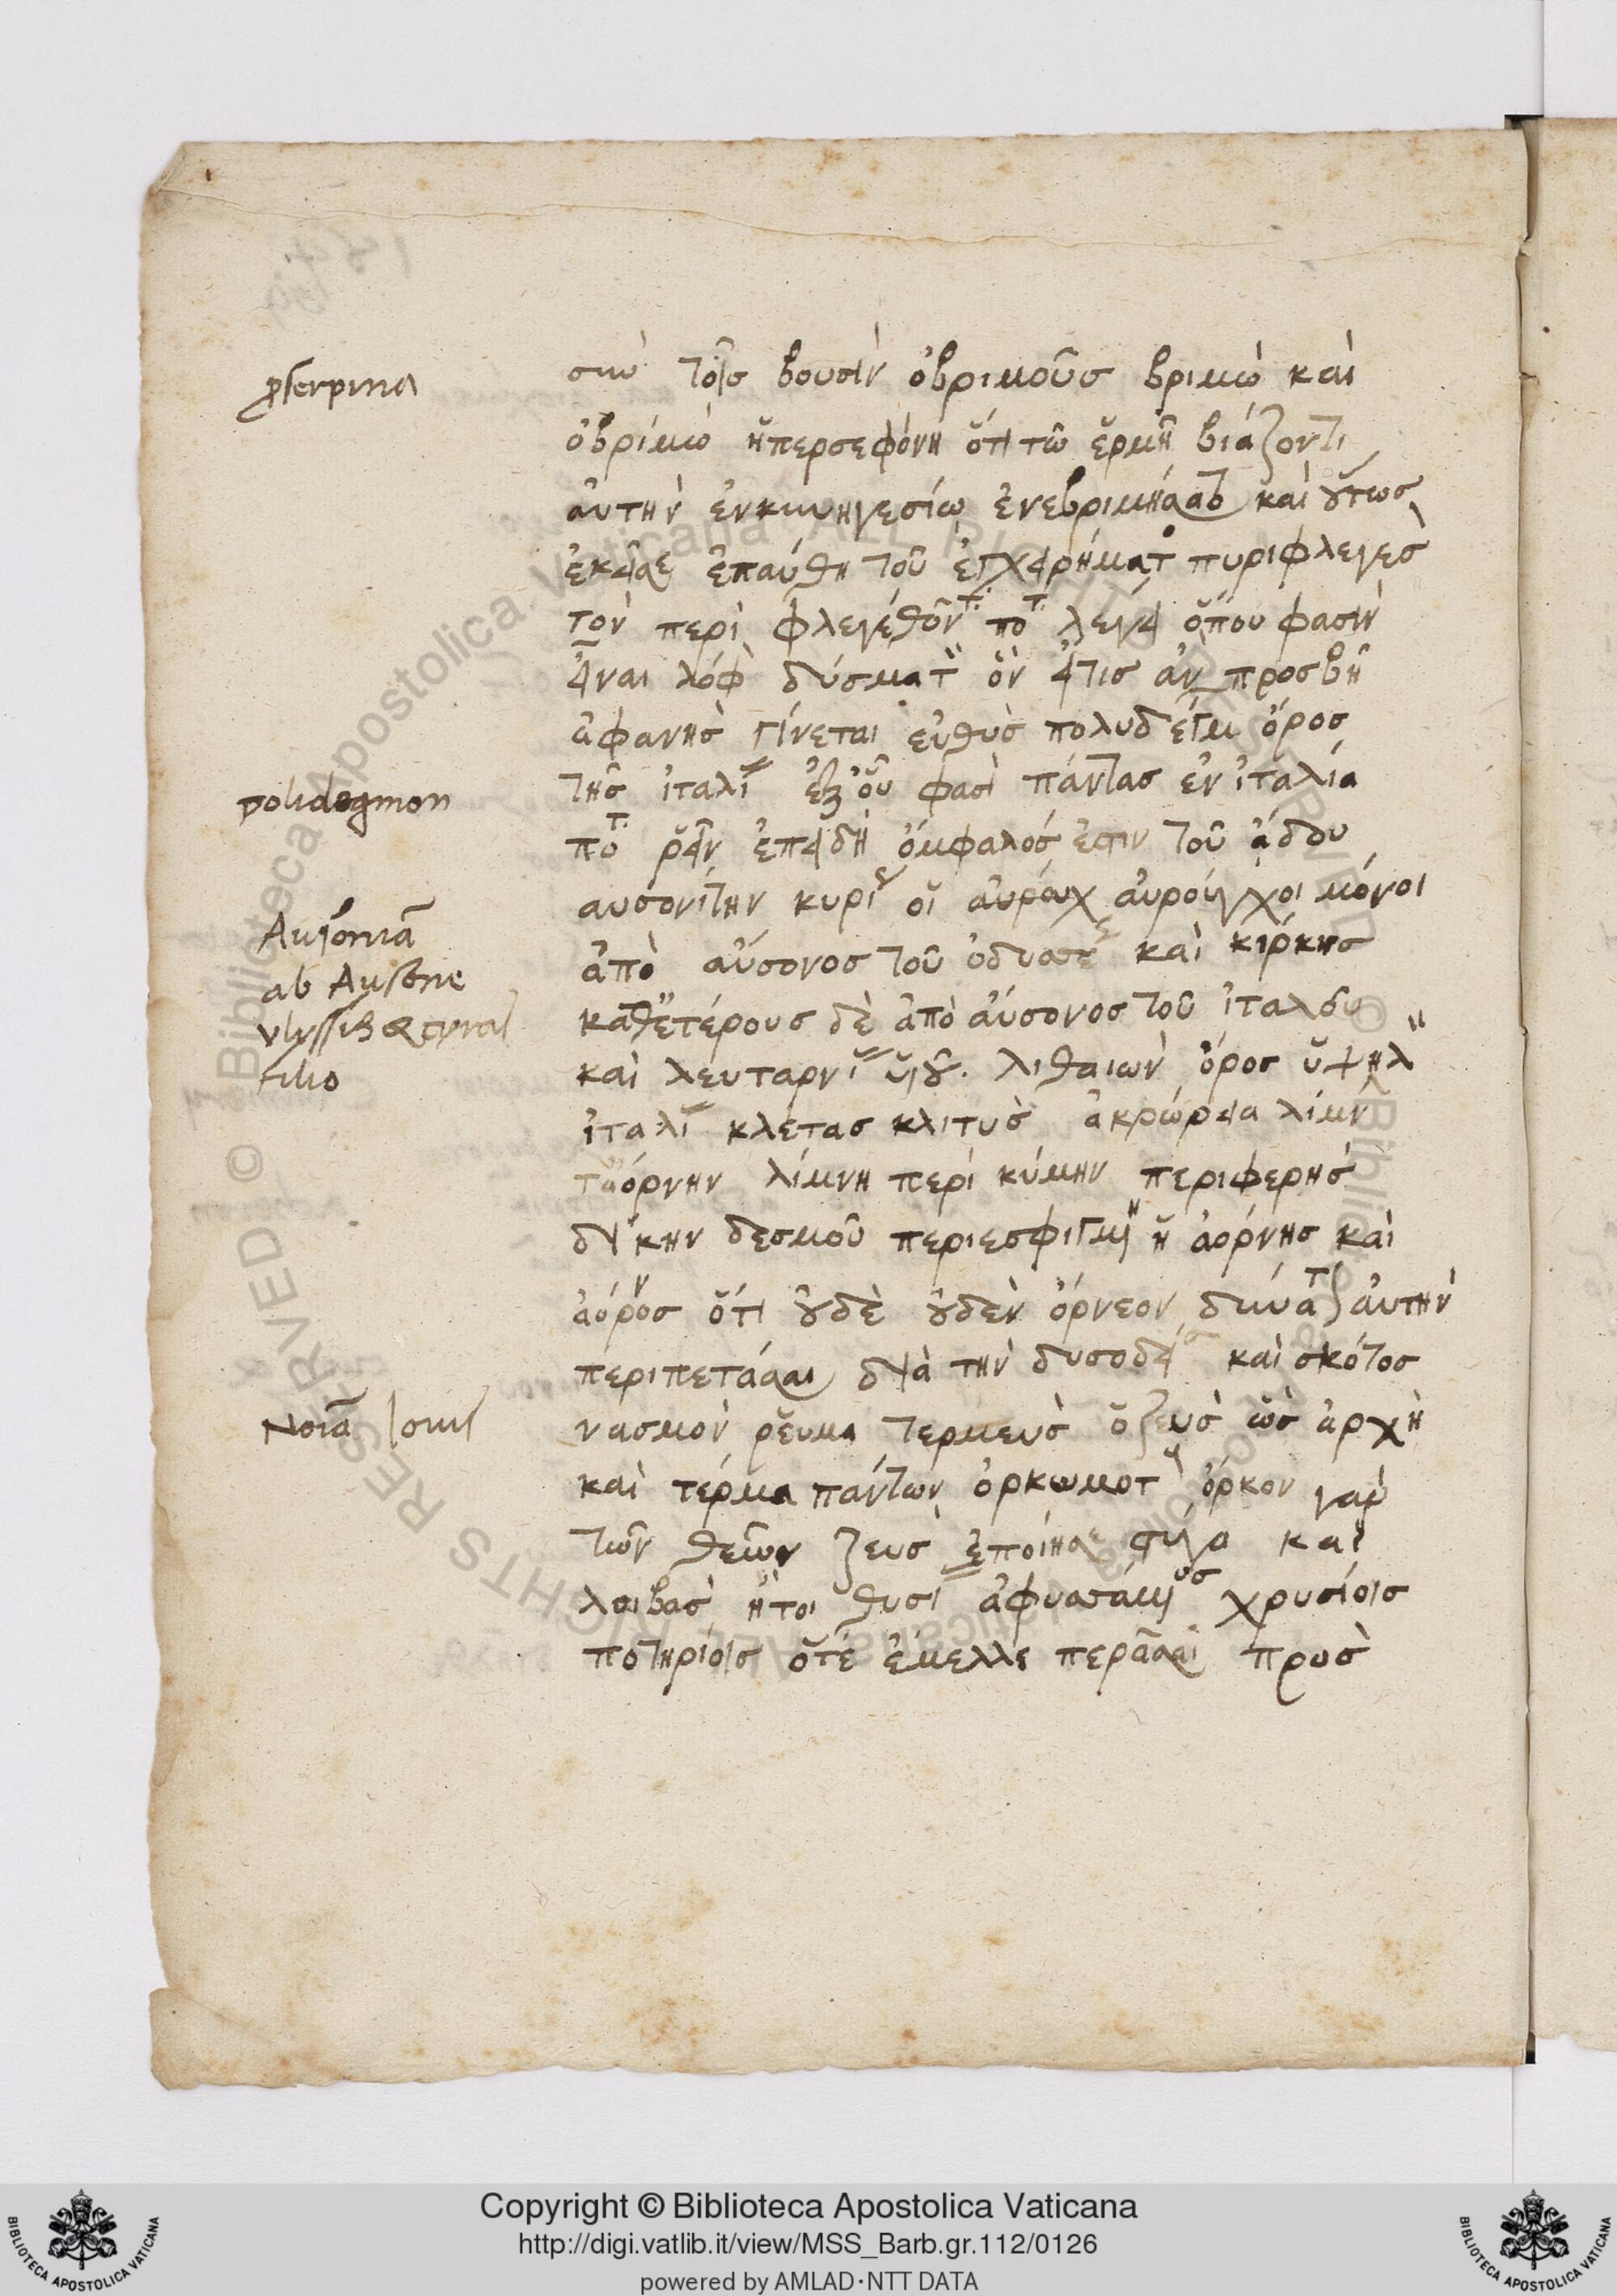 ꝓserpina
σὺν τοῖς βουσὶν ὀβριμοῦς βριμὼ καὶ
ὀβρίμω ἡ περσεφόνη ὅτι τῶ ἑρμῆ βιάζοντι
αὐτὴν ἐν κυνηγεσίω ἐνεβριμήσατο καὶ οὕτως
ἐπαύθη τοῦ ἐγχειρήματ πυριφλεγες
τὸν περὶ φλεγέθοντ ποτ λέγει ὅπου φασὶν
εἶναι λόφ δύσματ ὃν εἴτις ἂν προσβῆ
ἀφανὴς γίνεται εὐθὺς πολυδέγμ ὄρος
polidegmon
τῆς ἰταλί ἐξ οὗ φασὶ πάντας ἐν ἰταλία
ποτ ῥεῖν ἐπειδὴ ὀμφαλός ἐστιν τοῦ ἅδου
αυσονίτην κυρί οἱ αὐρούγχοι μόνοι
Ausoniā
ab Ausone
Ulyssis &
filio
ἀπὸ αὔσονος τοῦ ὀδυσσέ καὶ κίρκης
καθ ἑτέρους δὲ ἀπὸ αὔσονος τοῦ ἰταλοῦ
καὶ λευταρνί υἱοῦ. λιθαιων ὄρος ὑψηλ
ἰταλί κλέτας κλιτὺς ἀκρώρεια λίμν
τ ἀόρνην λίμνη περὶ κύμην περιφερὴς
δίκην δεσμοῦ περιεσφιγμ ἡ ἀόρνης καὶ
ἄορνος ὅτι οὐδὲ οὐδὲν ὄρνεον δύναται αὐτὴν
περιπετάσαι διὰ τὴν δυσοδεί καὶ σκότος
νασμὸν ῥεῦμα τερμευς ὁ ζευς ὡς ἀρχὴ
καὶ τέρμα πάντων ὁρκωμοτ ὅρκον γὰρ
τῶν θεῶν ζευς ἐποίησε στύγα καὶ
λοιβὰς ἤτοι θυσί ἀφυσσάμ χρυσίοις
ποτηρίοις ὅτε ἔμελλε περᾶσαι πρὸς
Copyright © Biblioteca Apostolica Vaticana
http://digi.vatlib.it/view/MSS_Barb.gr.112/0126
powered by AMLAD·NTT DATA
BIBLIOTECA APOSTOLICA VATICANA
BIBLIOTECA APOSTOLICA VATICANA